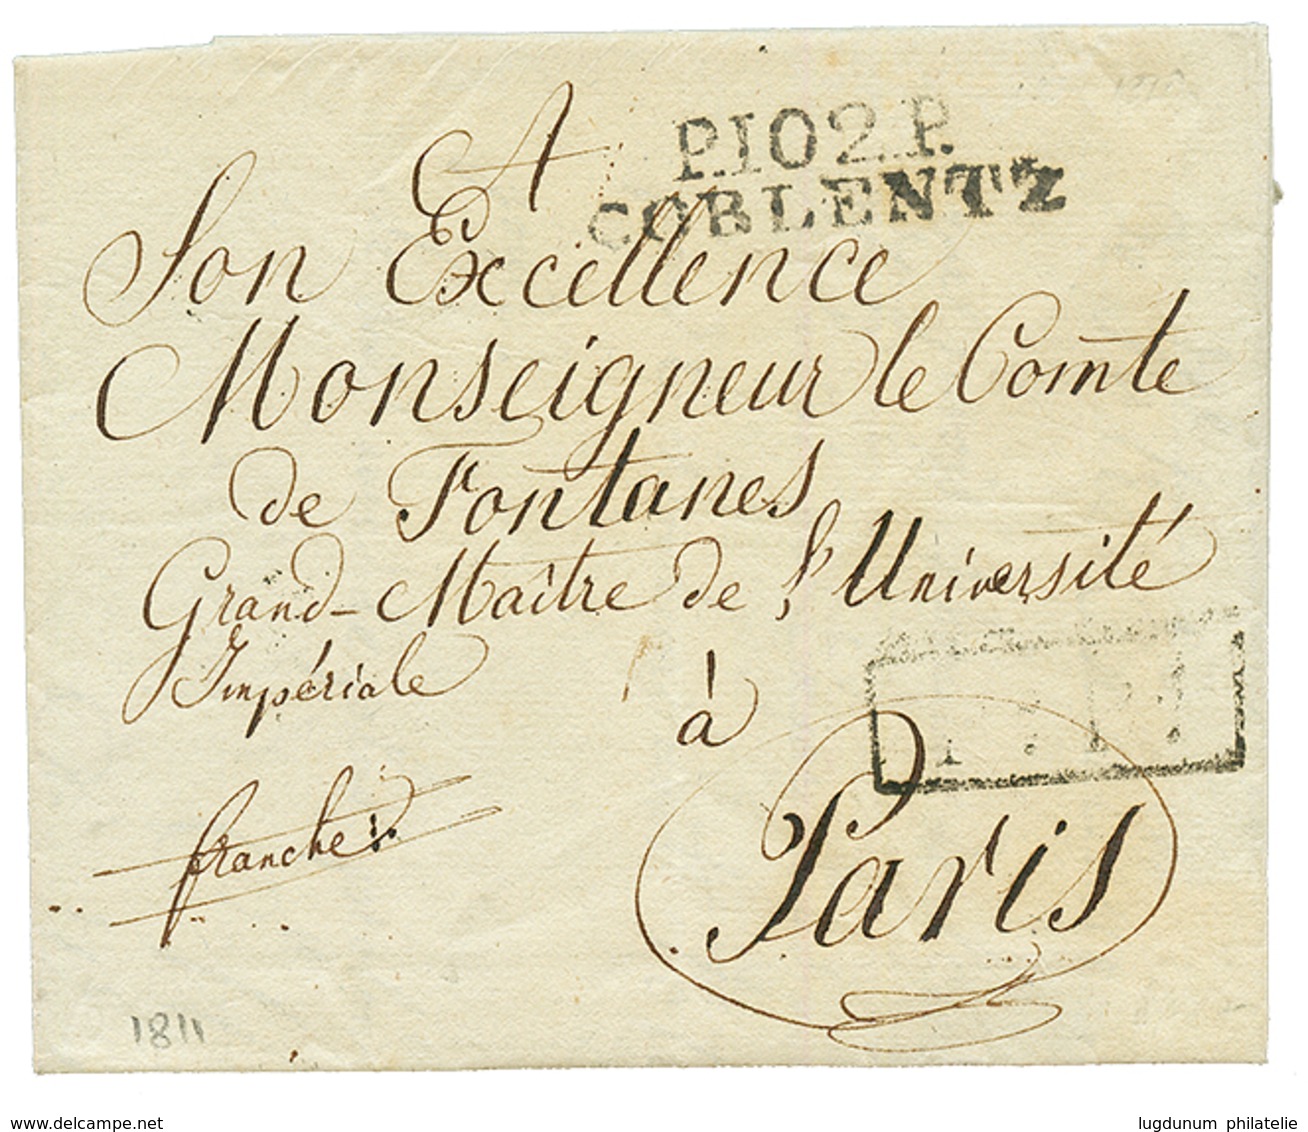 P.102.P.
COBLENTZ
A
Son Excellence
Monseigneur le Comte
de Fontanes
Grand-Maître de l'Université
Impériale
à
Paris
franche
1811
www.delcampe.net
lugdunum philatelie